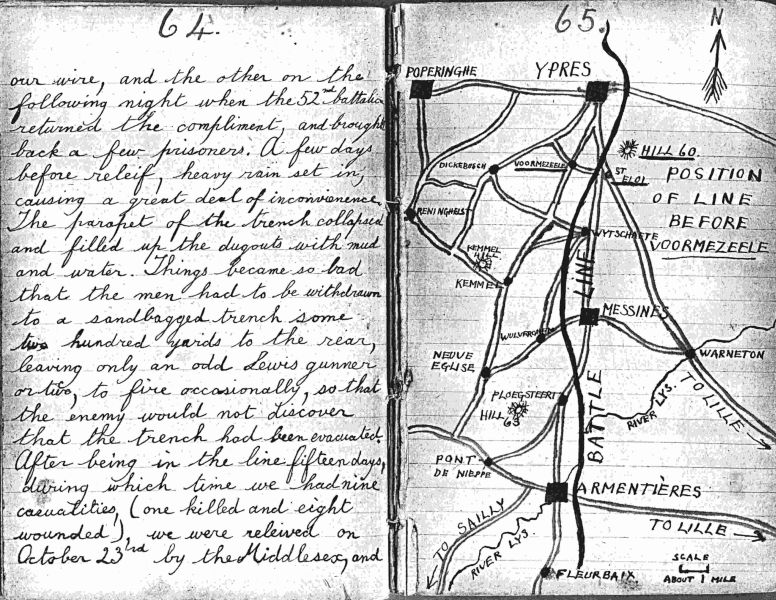 64.
our wire, and the other on the
following night when the 52nd battalion
returned the compliment, and brought
back a few prisoners. A few days
before releif, heavy rain set in,
causing a great deal of inconvenience.
The parapet of the trench collapsed
and filled up the dugouts with mud
and water. Things became so bad
that the men had to be withdrawn
to a sandbagged trench some
two hundred yards to the rear,
leaving only an odd Lewis gunner
or two, to fire occasionally, so that
the enemy would not discover
that the trench had been evacuated.
After being in the line fifteen days,
during which time we had nine
casualities, (one killed and eight
wounded), we were releived on
October 23rd by the Middlesex, and
65.
N
POPERINGHE
YPRES
HILL 60
DICKEBUSCH
VOORMEZEELE
ST ELOI
POSITION
OF LINE
BEFORE
VOORMEZEELE
RENINGHELST
WYTSCHAETE
KEMMEL
HILL
KEMMEL
LINE
MESSINES
WULVERGHEM
WARNETON
NEUVE
EGLISE
PLOEGSTEERT
HILL
63
BATTLE
RIVER LYS.
TO LILLE
PONT
DE NIEPPE
ARMENTIÈRES
TO SAILLY
RIVER LYS.
TO LILLE
SCALE
ABOUT 1 MILE
FLEURBAIX